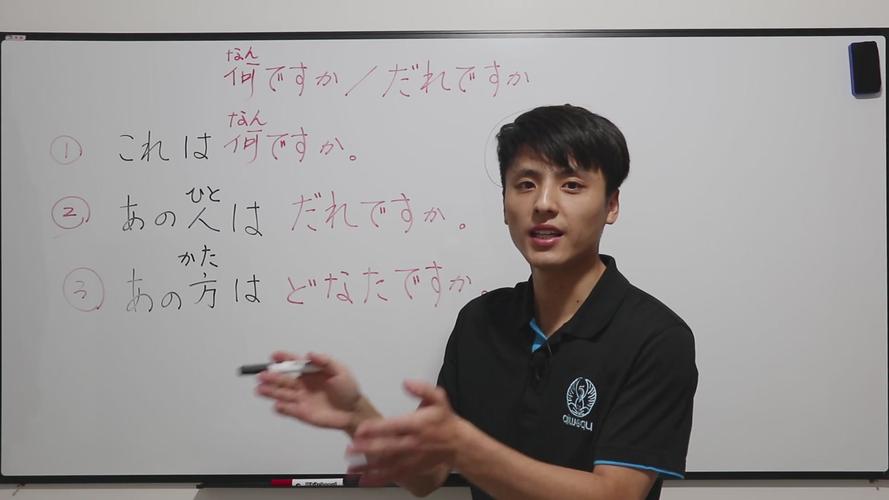 なん
何ですか／だれですか
なん
① これは何ですか。
ひと
② あの人はだれですか。
かた
③ あの方はどなたですか。